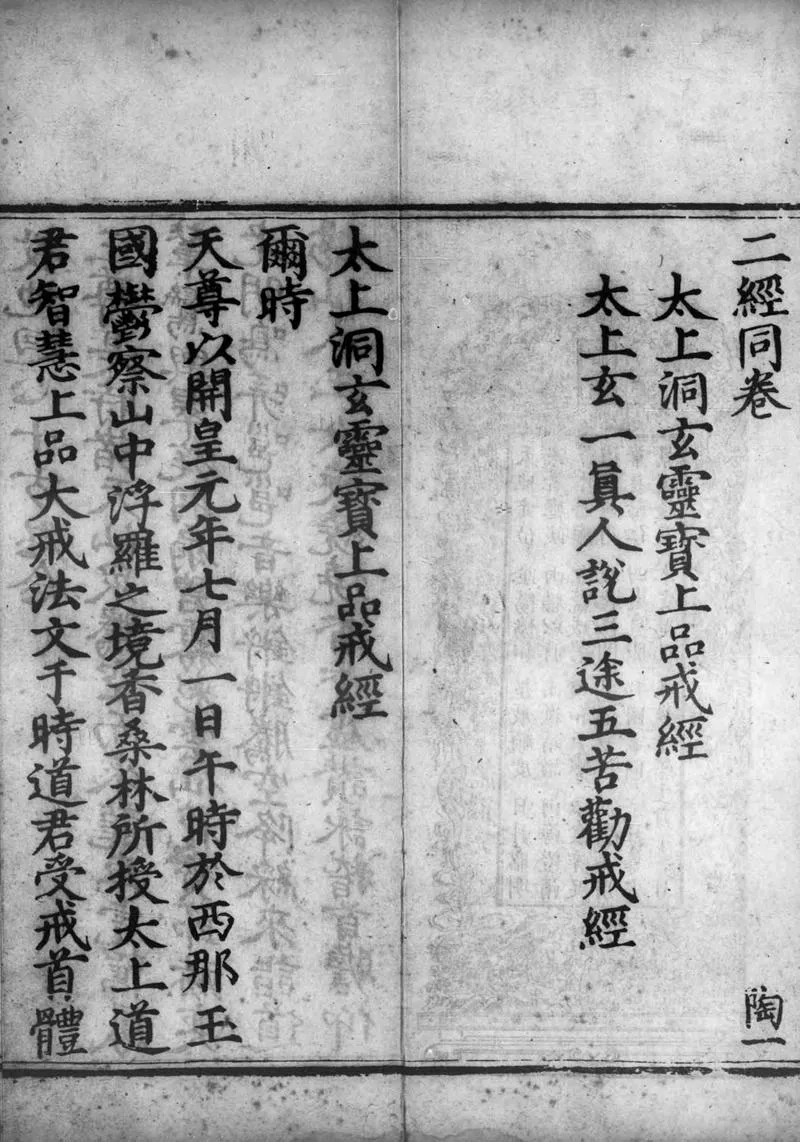 二經同卷 陶一
太上洞玄靈寶上品戒經
太上玄一眞人說三途五苦勸戒經
太上洞玄靈寶上品戒經
爾時
天尊以開皇元年七月一日午時於西那玉
國鬱察山中浮羅之境香桑林所授太上道
君智慧上品大戒法文于時道君受戒首體